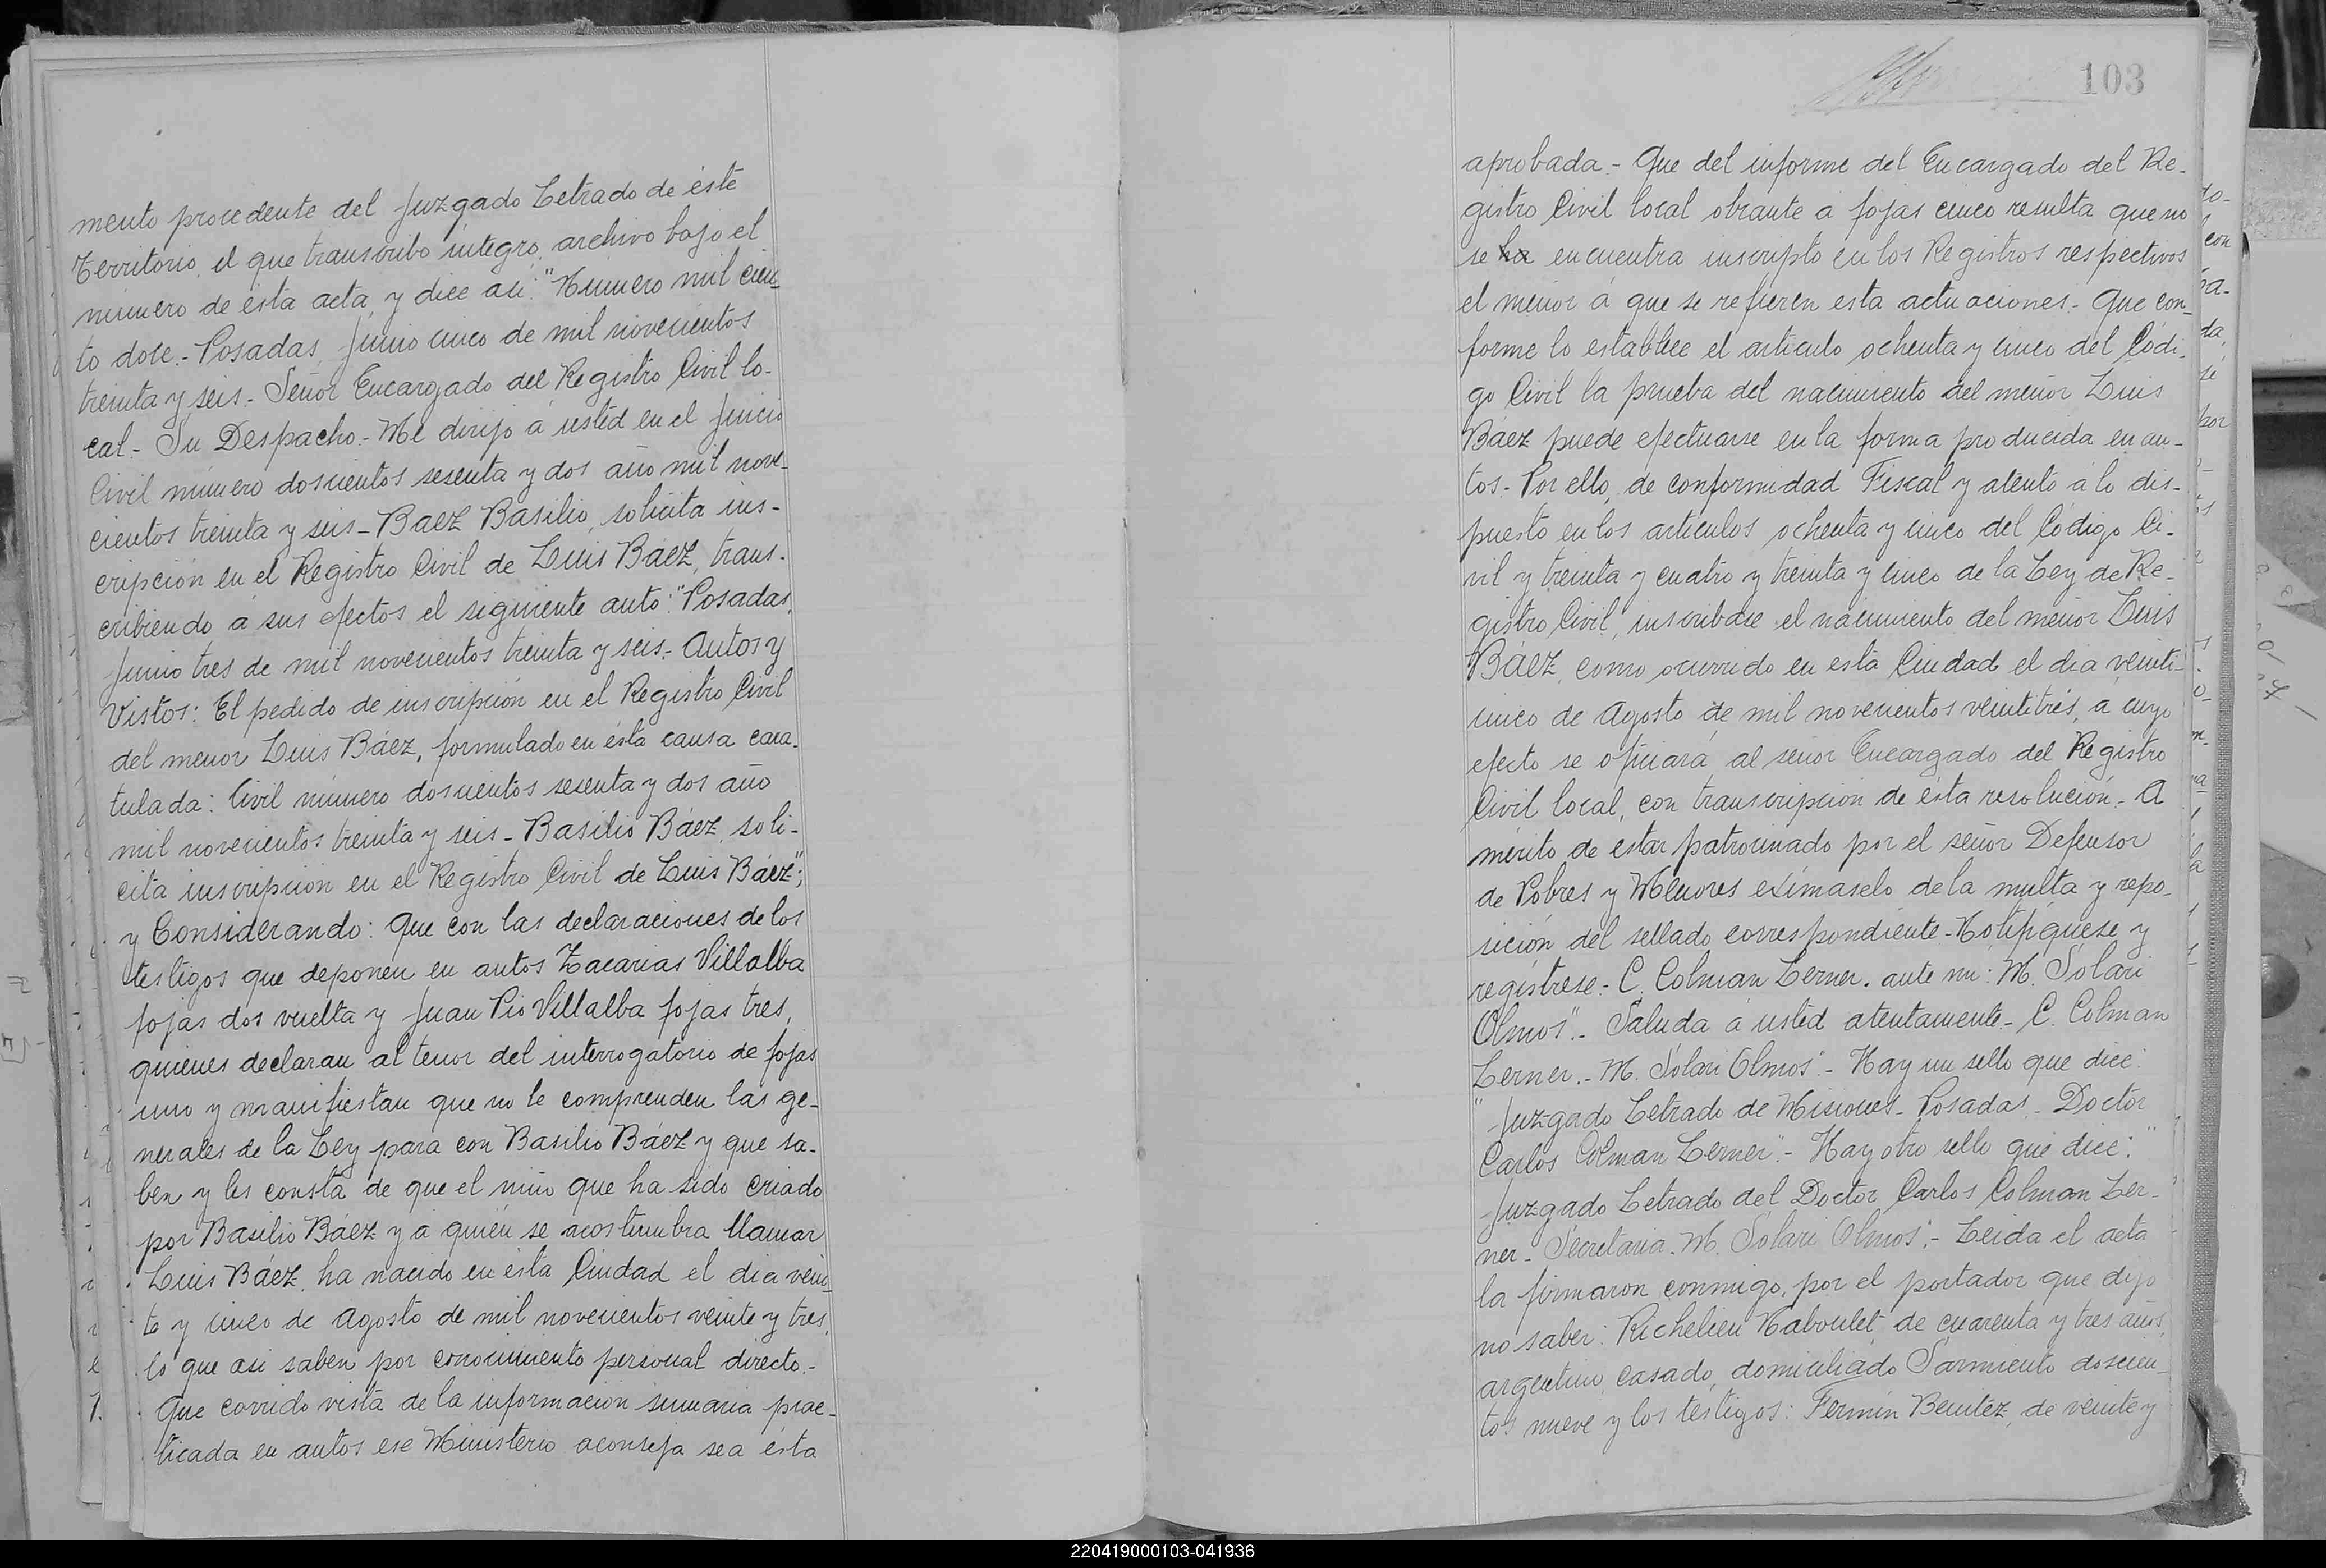 mento procedente del Juzgado Letrado de éste
Territorio, el que transcribo íntegro, archivo bajo el
número de ésta acta, y dice así: "Número mil cien-
to doce.- Posadas, Junio cinco de mil novecientos
treinta y seis.- Señor Encargado del Registro Civil lo-
cal.- Su Despacho.- Me dirijo á usted en el Juicio
Civil número doscientos sesenta y dos año mil nove-
cientos treinta y seis - Baez Basilio, solicita ins-
cripción en el Registro Civil de Luis Baez, trans-
cribiendo á sus efectos el siguiente auto: "Posadas,
Junio tres de mil novecientos treinta y seis.- Autos y
Vistos: El pedido de inscripción en el Registro Civil
del menor Luis Báez, formulado en ésta causa cara-
tulada: Civil número doscientos sesenta y dos año
mil novecientos treinta y seis - Basilio Báez, soli-
cita inscripción en el Registro Civil de Luis Báez";
y Considerando: Que con las declaraciones de los
testigos que deponen en autos Zacarias Villalba
fojas dos vuelta y Juan Pío Villalba fojas tres,
quienes declaran al tenor del interrogatorio de fojas
uno y manifiestan que no le comprenden las ge-
nerales de la Ley para con Basilio Báez y que sa-
ben y les consta de que el niño que ha sido criado
por Basilio Báez y a quién se acostumbra llamar
Luis Báez, ha nacido en ésta Ciudad el dia vein-
te y cinco de Agosto de mil novecientos veinte y tres,
lo que asi saben por conocimiento personal directo.-
Que corrido vista de la información sumaria prac-
ticada en autos ese Ministerio aconseja sea ésta
103
aprobada.- Que del informe del Encargado del Re-
gistro Civil local obrante a fojas cinco resulta que no
se ha encuentra inscripto en los Registros respectivos
el menor á que se refieren esta actuaciones.- Que con-
forme lo establece el artículo ochenta y cinco del Códi-
go Civil la prueba del nacimiento del menor Luis
Baez puede efectuarse en la forma producida en au-
tos.- Por ello, de conformidad Fiscal y atento á lo dis-
puesto en los artículos ochenta y cinco del Código Ci-
vil y treinta y cuatro y treinta y cinco de la Ley de Re-
gistro Civil, inscribase el nacimiento del menor Luis
Báez, como ocurrido en esta Ciudad el dia veinti-
cinco de Agosto de mil novecientos veintitrés, a cuyo
efecto se oficiará al señor Encargado del Registro
Civil local, con transcripción de ésta resolución.- A
mérito de estar patrocinado por el señor Defensor
de Pobres y Menores exímaselo de la multa y repo-
sición del sellado correspondiente.- Notifíquese y
regístrese.- C. Colman Lerner. ante mi: M. Solari
Olmos".- Saluda á usted atentamente.- C. Colman
Lerner.- M. Solari Olmos".- Hay un sello que dice:
"Juzgado Letrado de Misiones - Posadas - Doctor
Carlos Colman Lerner".- Hay otro sello que dice: "
Juzgado Letrado del Doctor Carlos Colman Ler-
ner - Secretaria - M. Solari Olmos".- Leida el acta
la firmaron conmigo, por el portador que dijo
no saber: Richelieu Naboulet, de cuarenta y tres años,
argentino, casado, domiciliado Sarmiento doscien-
tos nueve y los testigos: Fermín Benitez, de veinte y
220419000103-041936